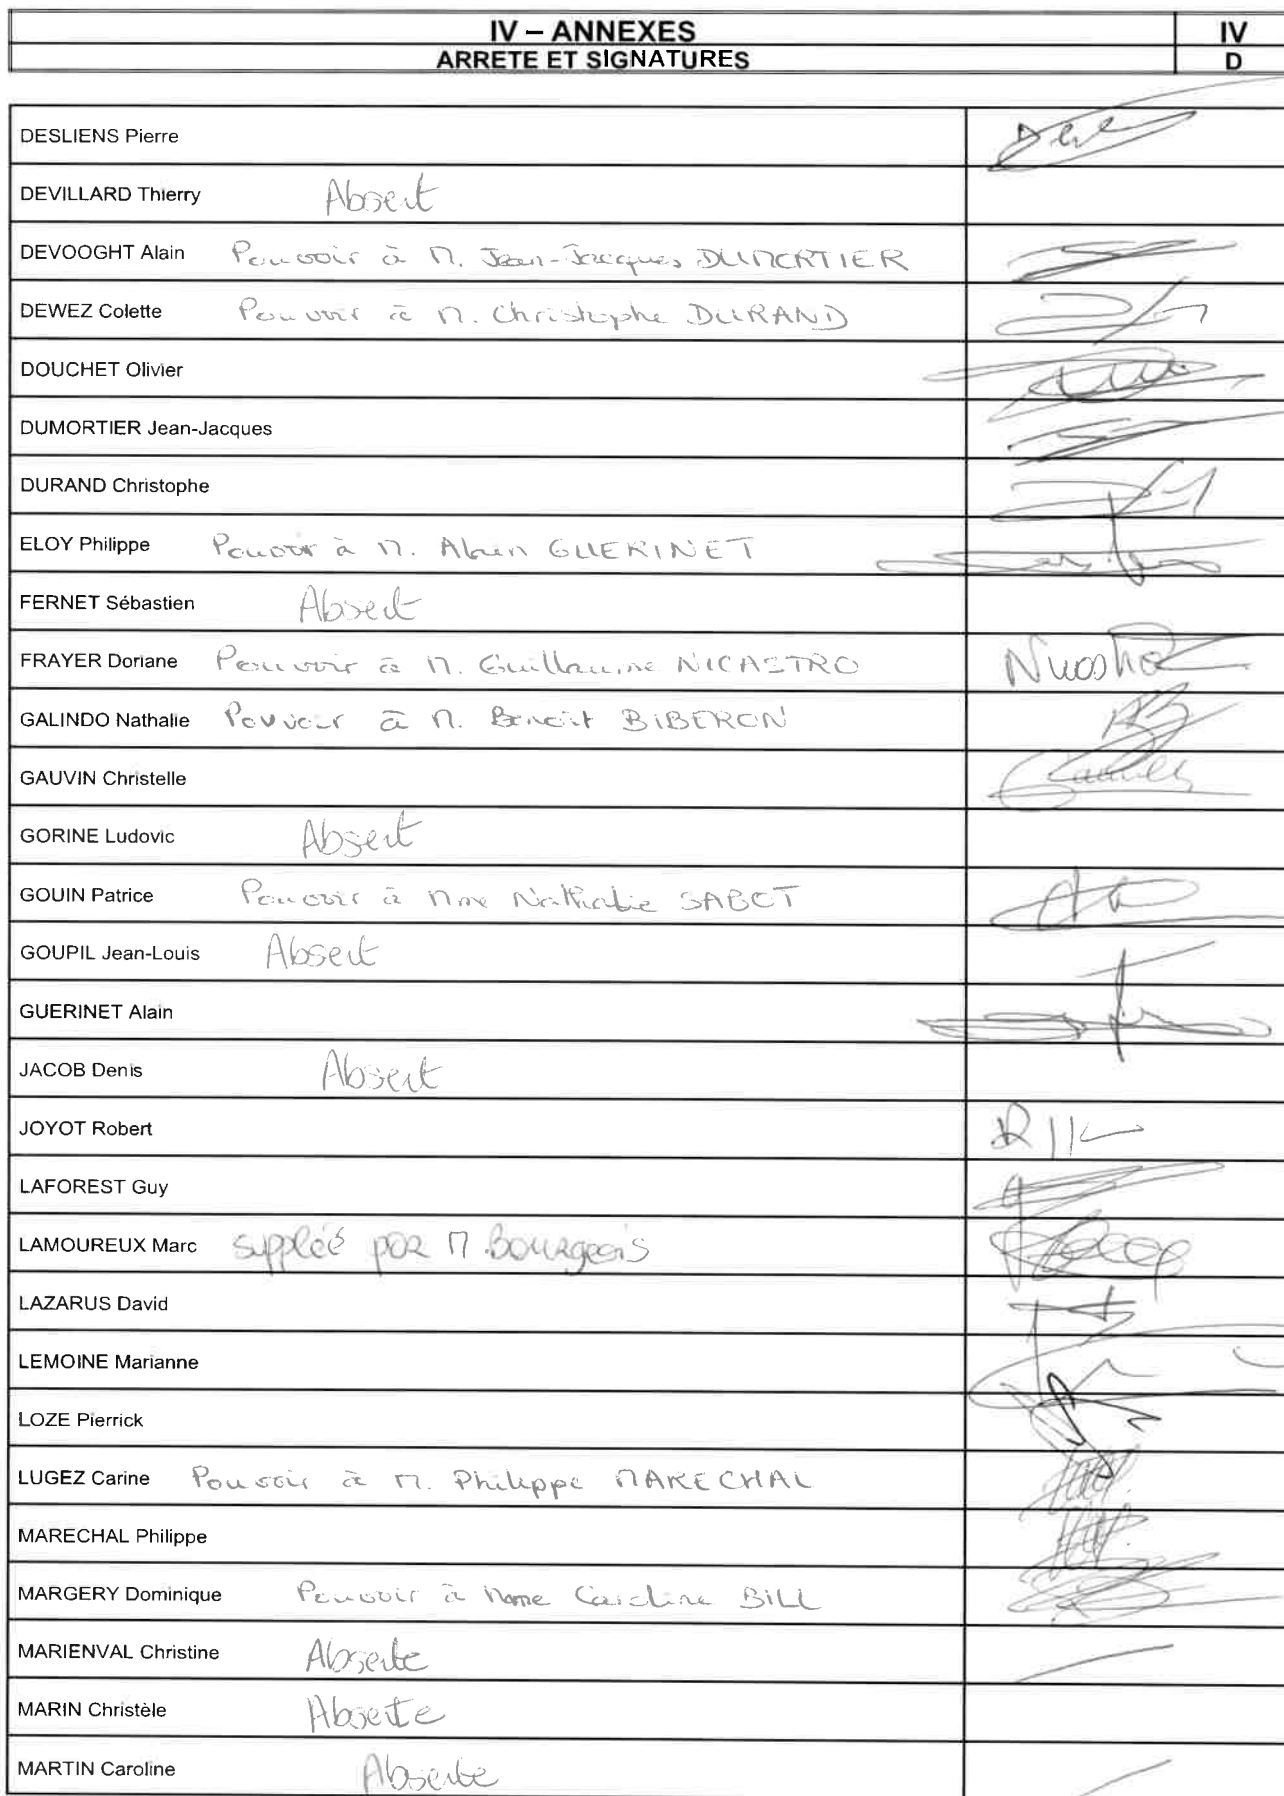 IV – ANNEXES IV
ARRETE ET SIGNATURES D
DESLIENS Pierre
DEVILLARD Thierry Absent
DEVOOGHT Alain Pouvoir à M. Jean-Jacques DUMORTIER
DEWEZ Colette Pouvoir à M. Christophe DURAND
DOUCHET Olivier
DUMORTIER Jean-Jacques
DURAND Christophe
ELOY Philippe Pouvoir à M. Alain GUERINET
FERNET Sébastien Absent
FRAYER Doriane Pouvoir à M. Guillaume NICASTRO
GALINDO Nathalie Pouvoir à M. Benoît BIBERON
GAUVIN Christelle
GORINE Ludovic Absent
GOUIN Patrice Pouvoir à Mme Nathalie SABOT
GOUPIL Jean-Louis Absent
GUERINET Alain
JACOB Denis Absent
JOYOT Robert
LAFOREST Guy
LAMOUREUX Marc suppléé par M. Bourgeois
LAZARUS David
LEMOINE Marianne
LOZE Pierrick
LUGEZ Carine Pouvoir à M. Philippe MARECHAL
MARECHAL Philippe
MARGERY Dominique Pouvoir à Mme Caroline BILL
MARIENVAL Christine Absente
MARIN Christèle Absente
MARTIN Caroline Absente